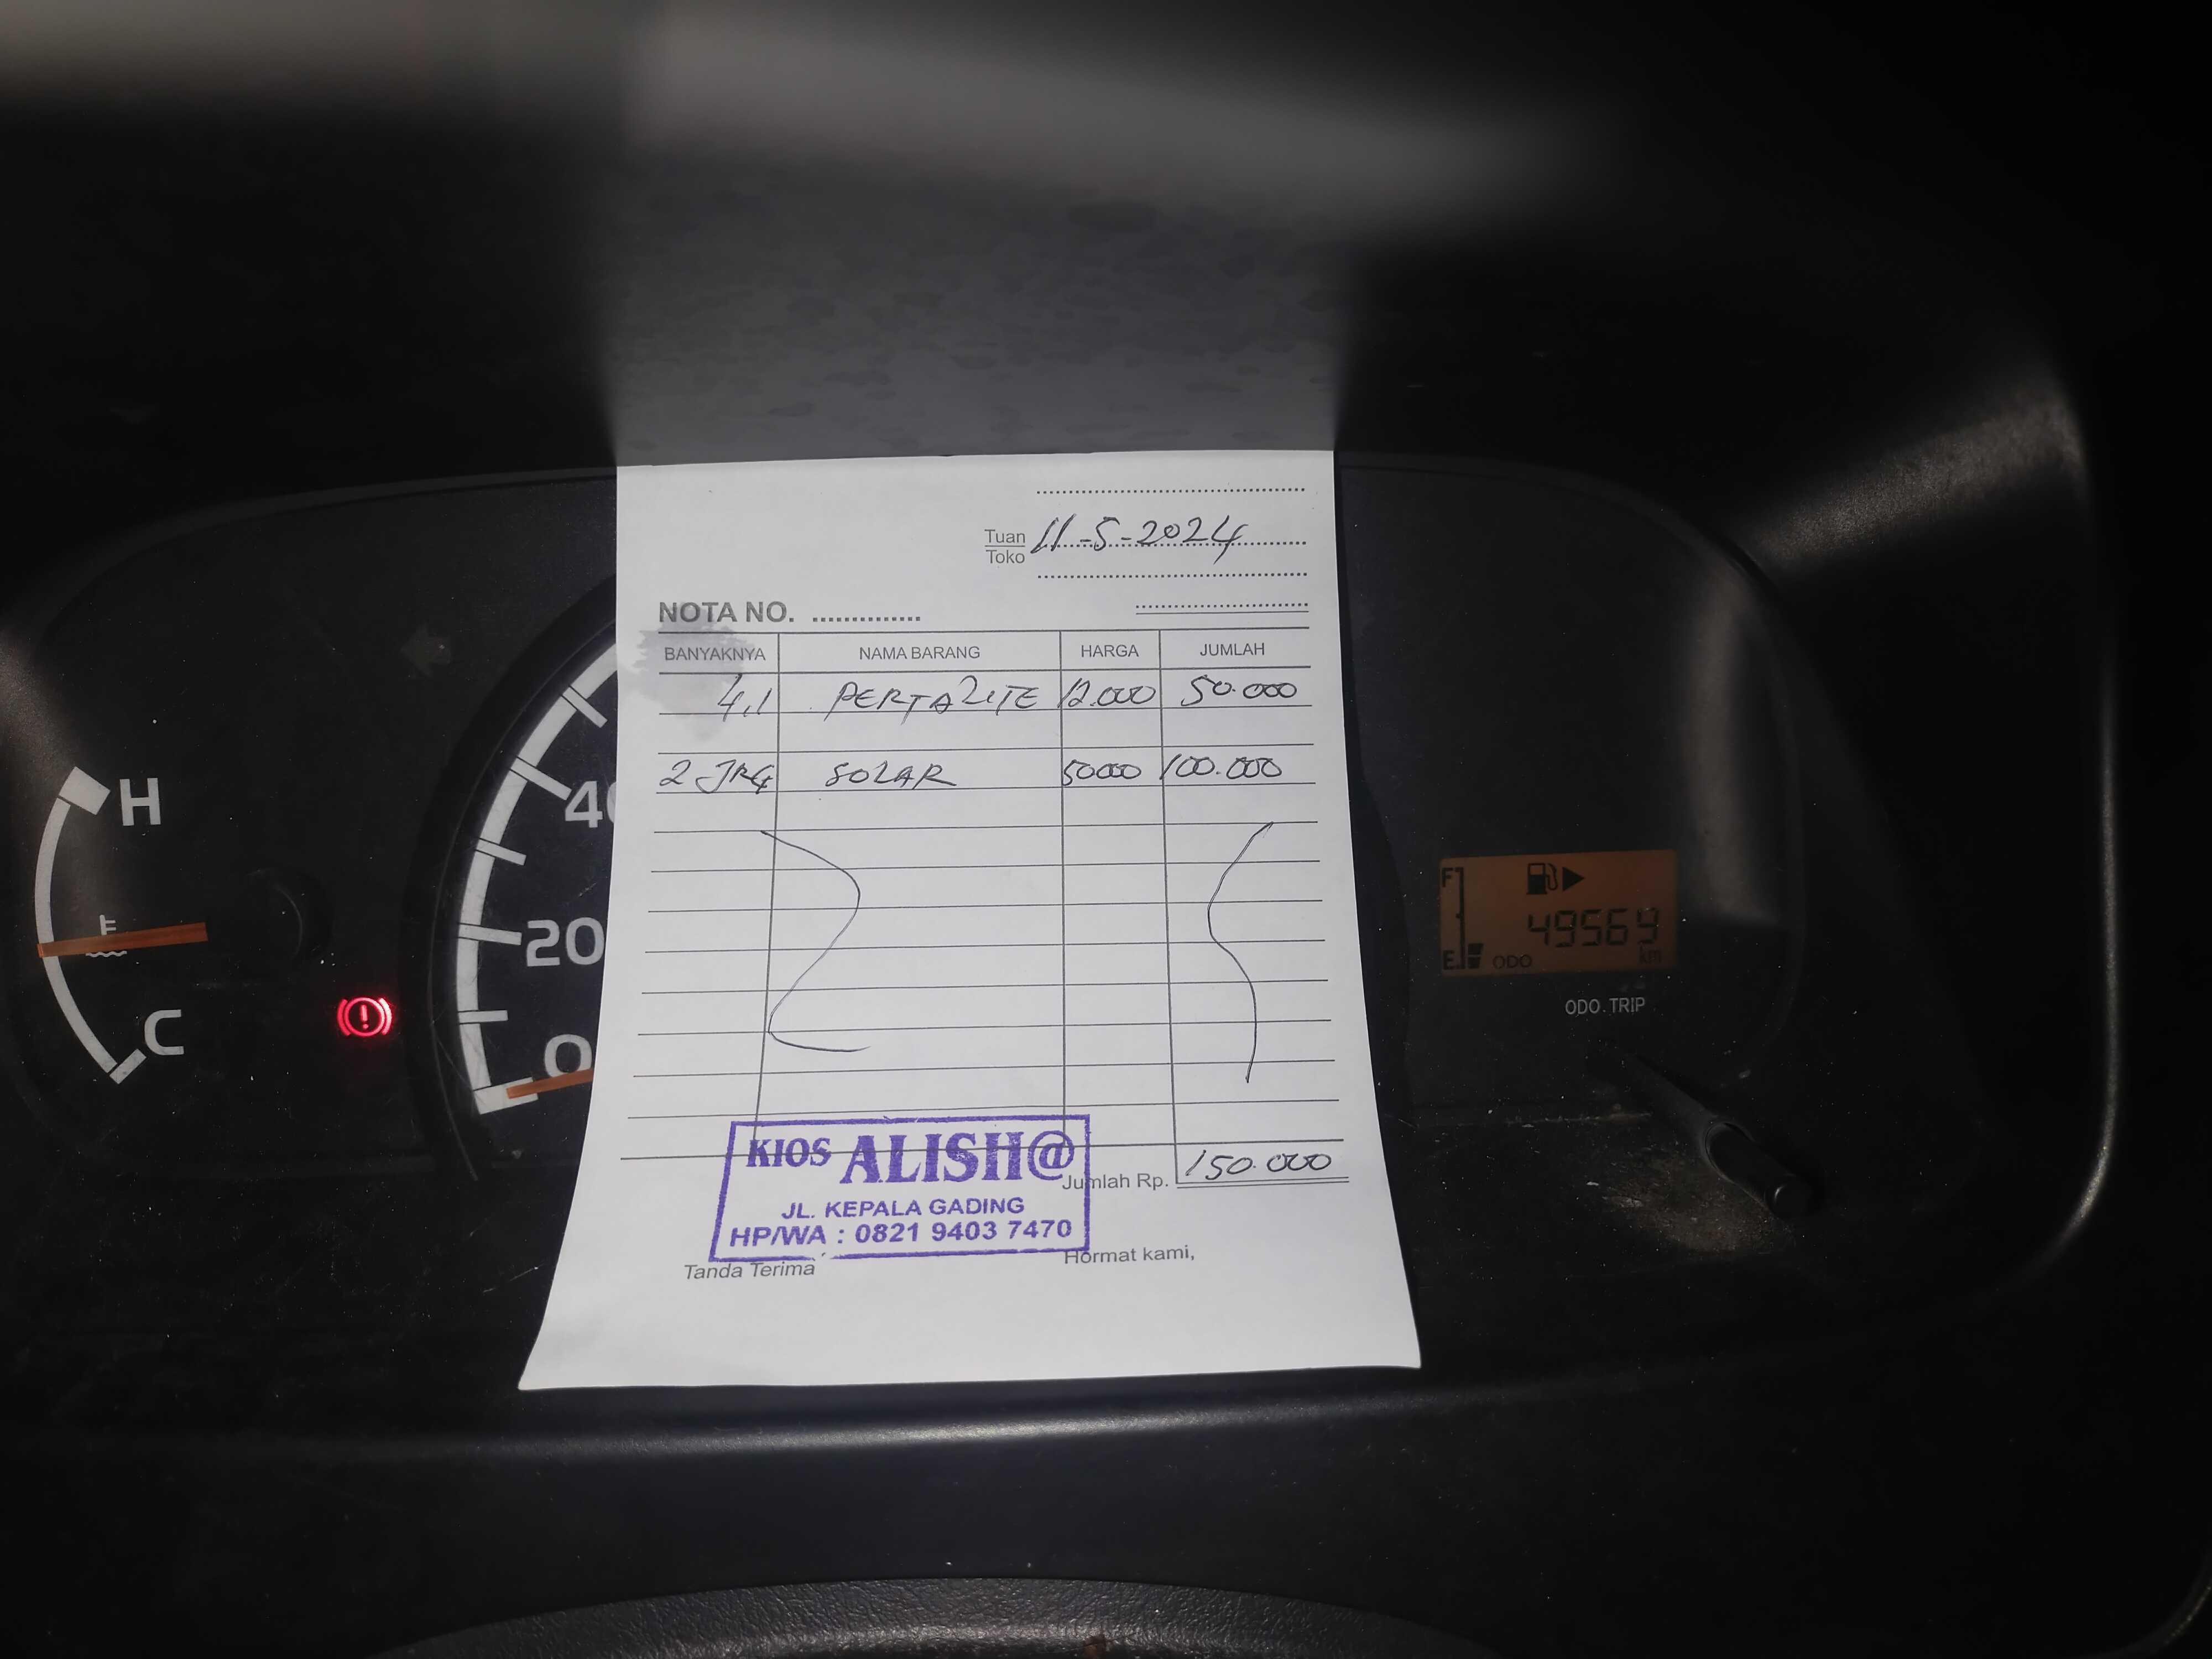 Tuan
Toko 11-5-2024
NOTA NO.
BANYAKNYA NAMA BARANG HARGA JUMLAH
4,1 PERTALITE 12.000 50.000
2 JRG SOLAR 50000 100.000
KIOS ALISH@
JL. KEPALA GADING
HP/WA : 0821 9403 7470
Jumlah Rp. 150.000
Tanda Terima Hormat kami,
H
C
40
20
0
F
49569
E ODO km
ODO.TRIP